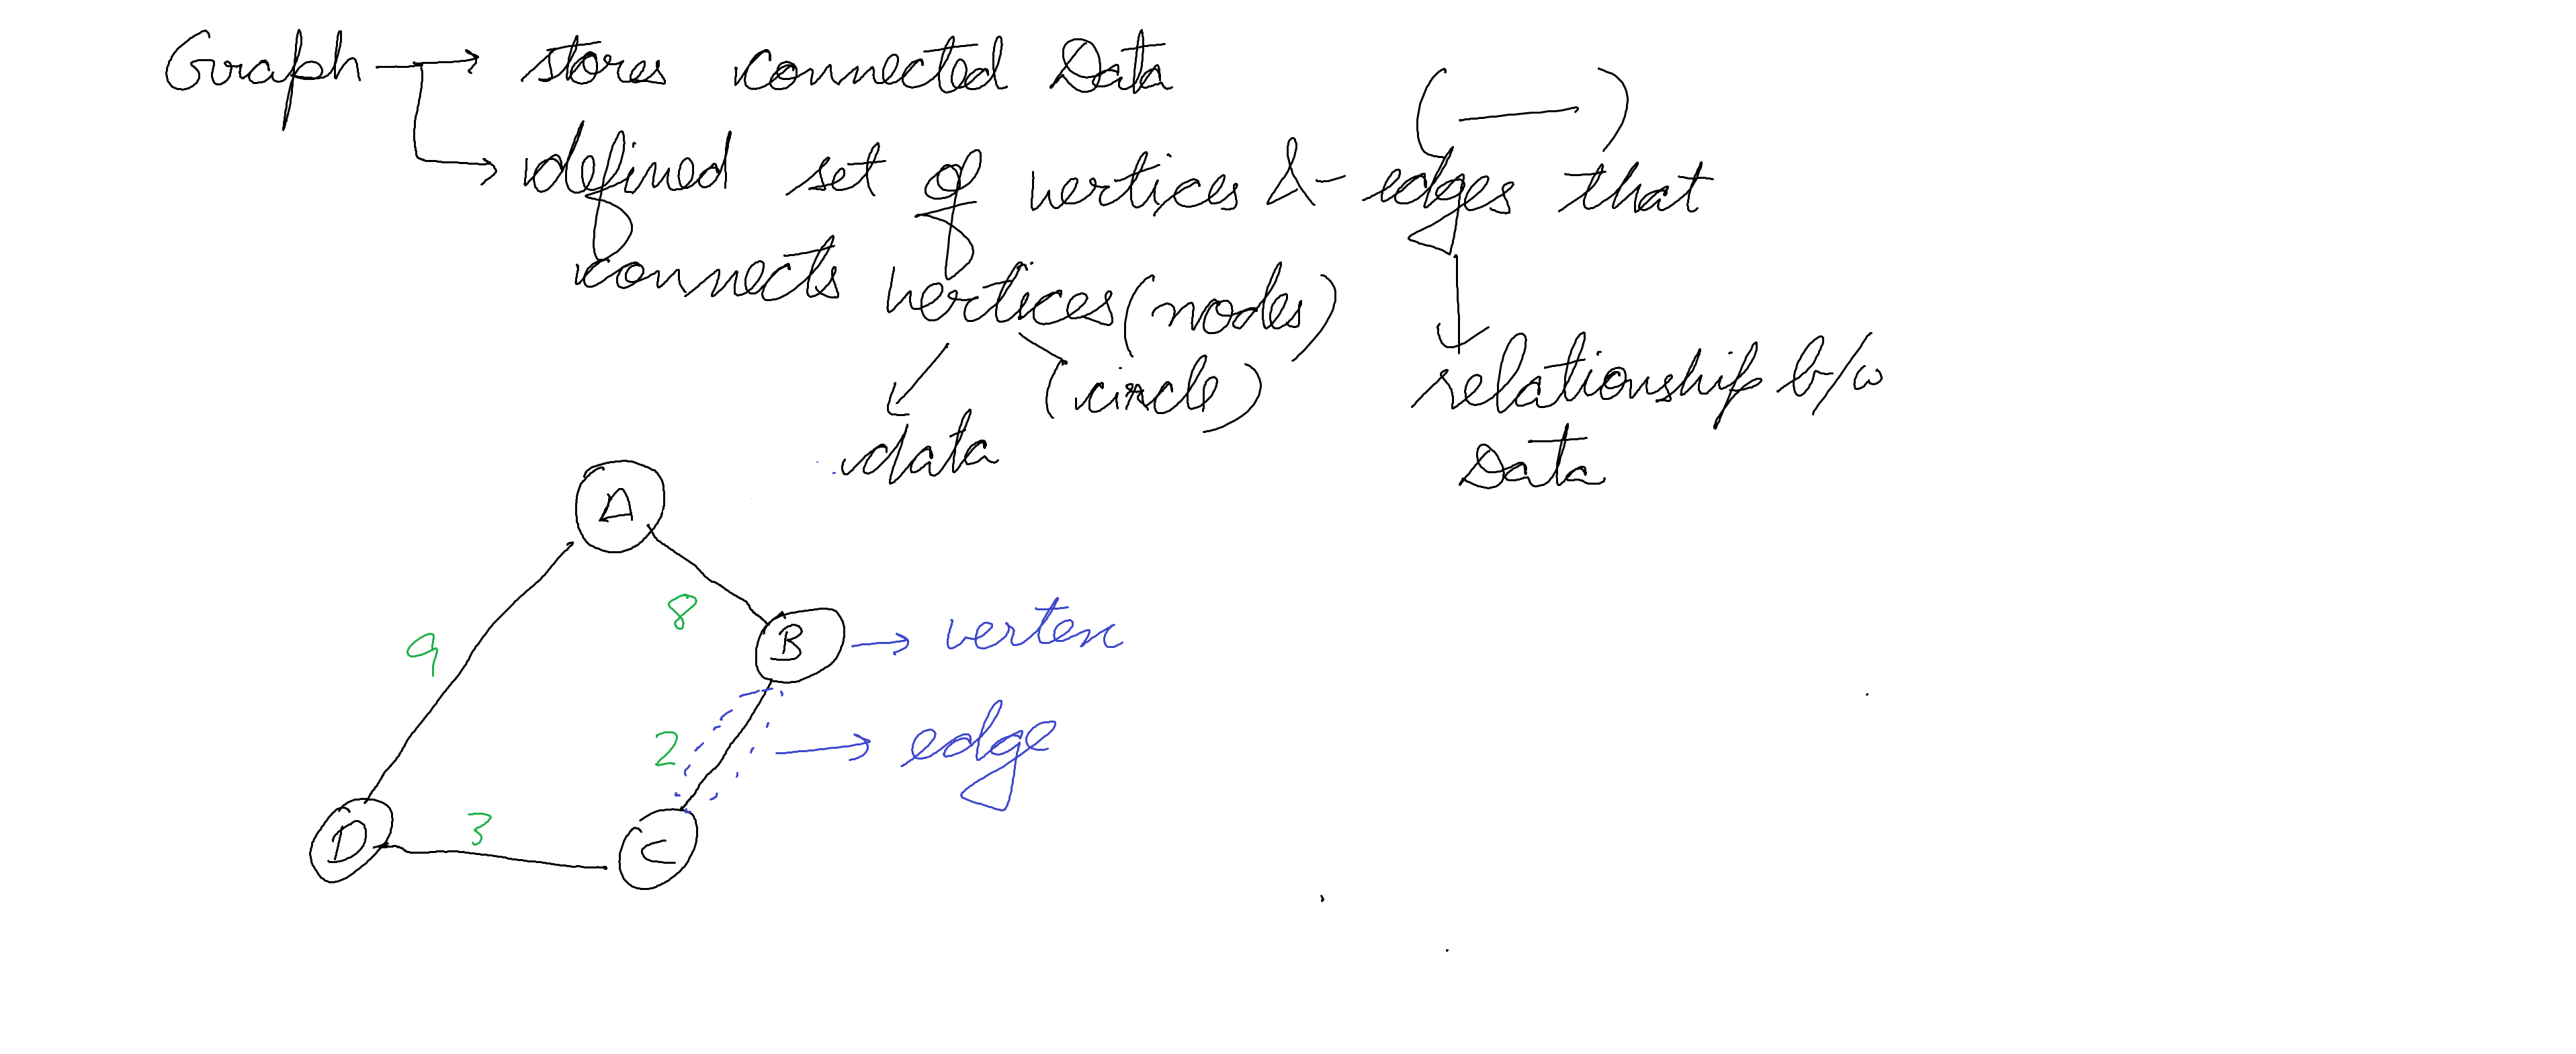 Graph → stores connected Data
→ defined set of vertices & edges that (—)
connects vertices (nodes)
(circle)
relationship b/w
data
Data
A
8
B → vertex
9
2
→ edge
3
D
C